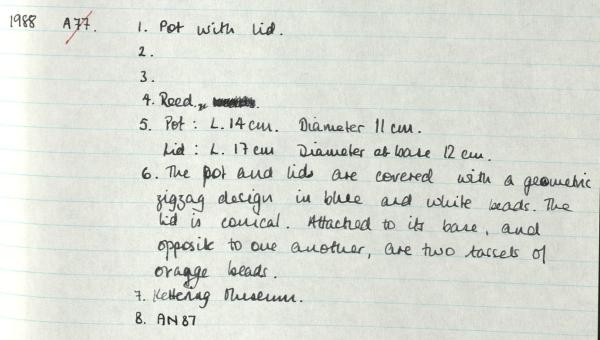 1988 A77. 1. Pot with lid.
2.
3.
4. Reed,
5. Pot : L. 14 cm. Diameter 11 cm.
Lid : L. 17 cm Diameter at base 12 cm.
6. The pot and lid are covered with a geometric
zigzag design in blue and white beads. The
lid is conical. Attached to its base, and
opposite to one another, are two tassels of
orange beads.
7. Kettering Museum.
8. AN87